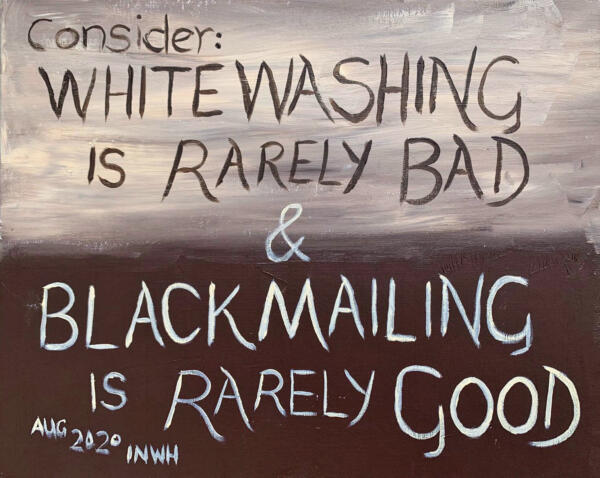 Consider:
WHITE WASHING
IS RARELY BAD
&
BLACK MAILING
IS RARELY GOOD
AUG 2020 INWH